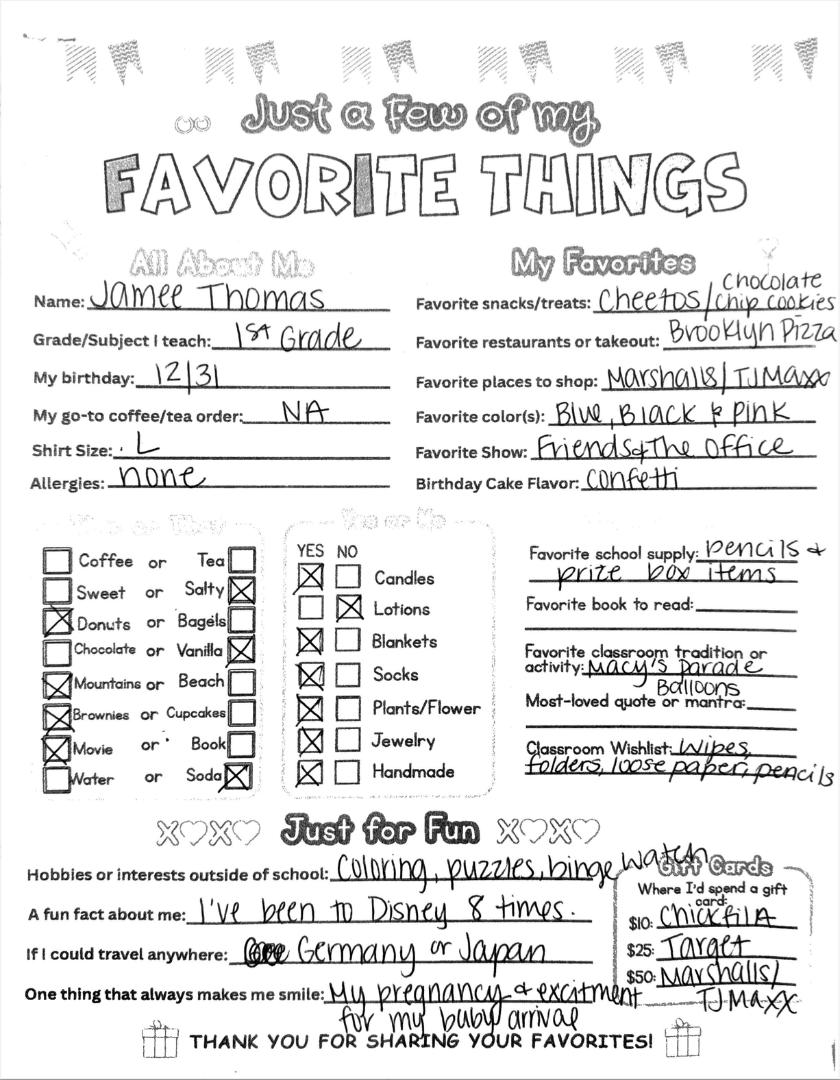 Just a Few of my
FAVORITE THINGS
All About Me
Name: Jamee Thomas
Grade/Subject I teach: 1st Grade
My birthday: 12/31
My go-to coffee/tea order: NA
Shirt Size: L
Allergies: none
My Favorites
Favorite snacks/treats: Cheetos/Chocolate chip cookies
Favorite restaurants or takeout: Brooklyn Pizza
Favorite places to shop: Marshalls/TJMaxx
Favorite color(s): Blue, Black & Pink
Favorite Show: Friends & The Office
Birthday Cake Flavor: confetti
This or That
Coffee or Tea
Sweet or Salty
Donuts or Bagels
Chocolate or Vanilla
Mountains or Beach
Brownies or Cupcakes
Movie or Book
Water or Soda
Yes or No
YES NO
Candles
Lotions
Blankets
Socks
Plants/Flower
Jewelry
Handmade
Favorite school supply: pencils &
prize box items
Favorite book to read:
Favorite classroom tradition or
activity: Macy's Parade
Balloons
Most-loved quote or mantra:
Classroom Wishlist: wipes,
folders, loose paper, pencils
XOXO Just for Fun XOXO
Hobbies or interests outside of school: Coloring, puzzles, binge watch
A fun fact about me: I've been to Disney 8 times.
If I could travel anywhere: Germany or Japan
One thing that always makes me smile: My pregnancy & excitment
for my baby arrival
Gift Cards
Where I'd spend a gift
card:
$10: Chickfila
$25: Target
$50: Marshalls/
TJMaxx
THANK YOU FOR SHARING YOUR FAVORITES!